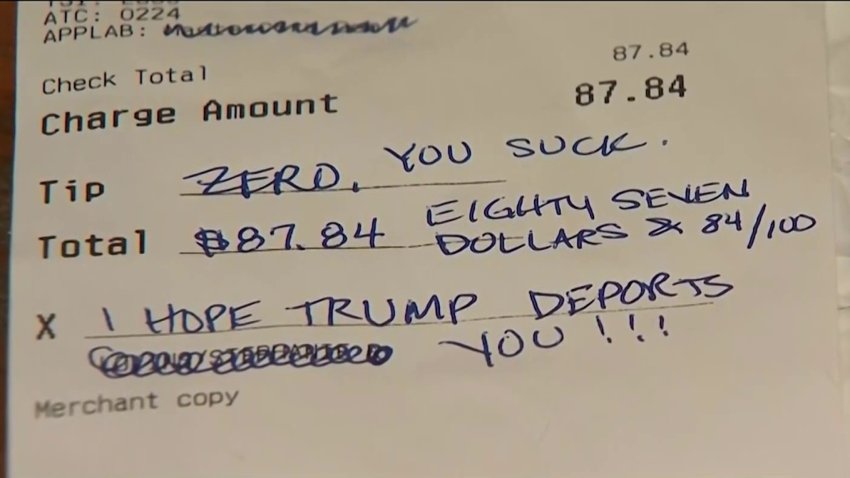 ATC: 0224
APPLAB:
Check Total 87.84
Charge Amount 87.84
Tip ZERO, YOU SUCK.
Total $87.84 EIGHTY SEVEN DOLLARS & 84/100
X I HOPE TRUMP DEPORTS
YOU!!!
Merchant copy